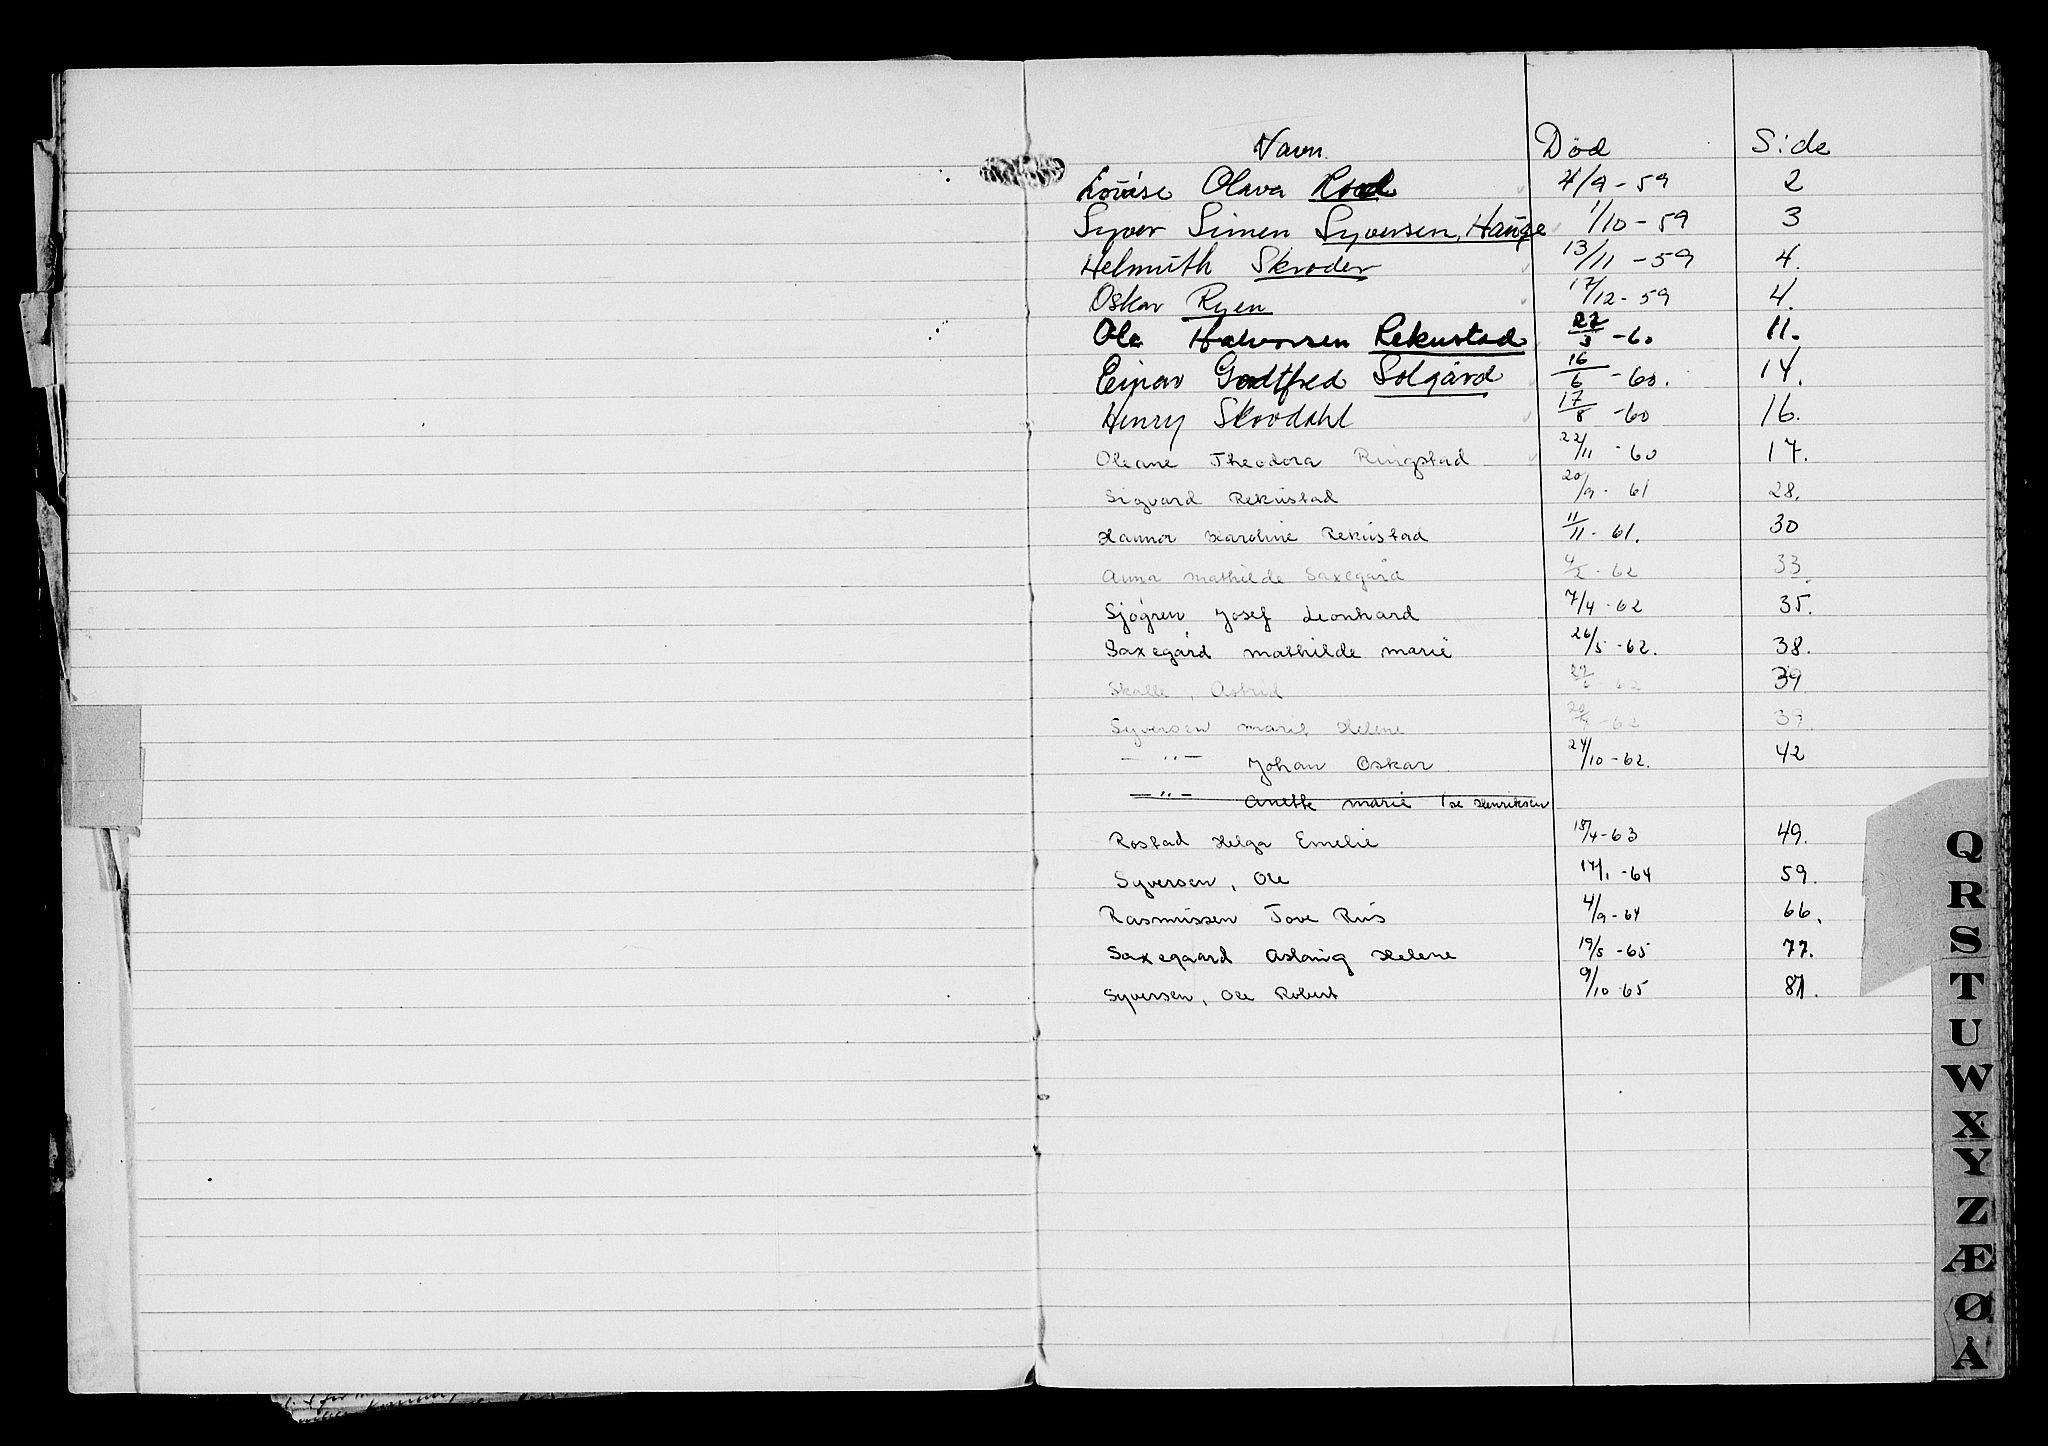 Navn Død Side
Louise Olava 4/9-59 2
Syver Simen Syversen, Hauge 1/10-59 3
Helmuth Skrøder 13/11-59 4.
Oskar Ryen 17/12-59 4.
Ole Halvorsen Rekustad 22/3-60 11.
Einar Godtfred Solgård 16/6-60. 14.
Henry Skrødahl 17/8-60 16.
Oleane Theodora Ringstad 22/11-60 17.
Sigvard Rekustad 20/9-61 28.
Hanna Karoline Rekustad 11/11-61. 30
Anna Mathilde Saxegård 4/2-62 33.
Sjøgren Josef Leonhard 7/4-62 35.
Saxegård Mathilde Marie 26/5-62. 38.
Skalle, Astrid 39
Syversen Marit Helene 39.
— " — Johan Oskar 24/10-62. 42
— " — Anette Marie (se Henriksen
Rostad Helga Emelie 18/4-63 49.
Syversen, Ole 17/1-64 59.
Rasmussen Tove Riis 4/9-64 66.
Saxegaard Aslaug Helene 19/5-65 77.
Syversen, Ole Robert 9/10-65 81.
Q
R
S
T
U
W
X
Y
Z
Æ
Ø
Å